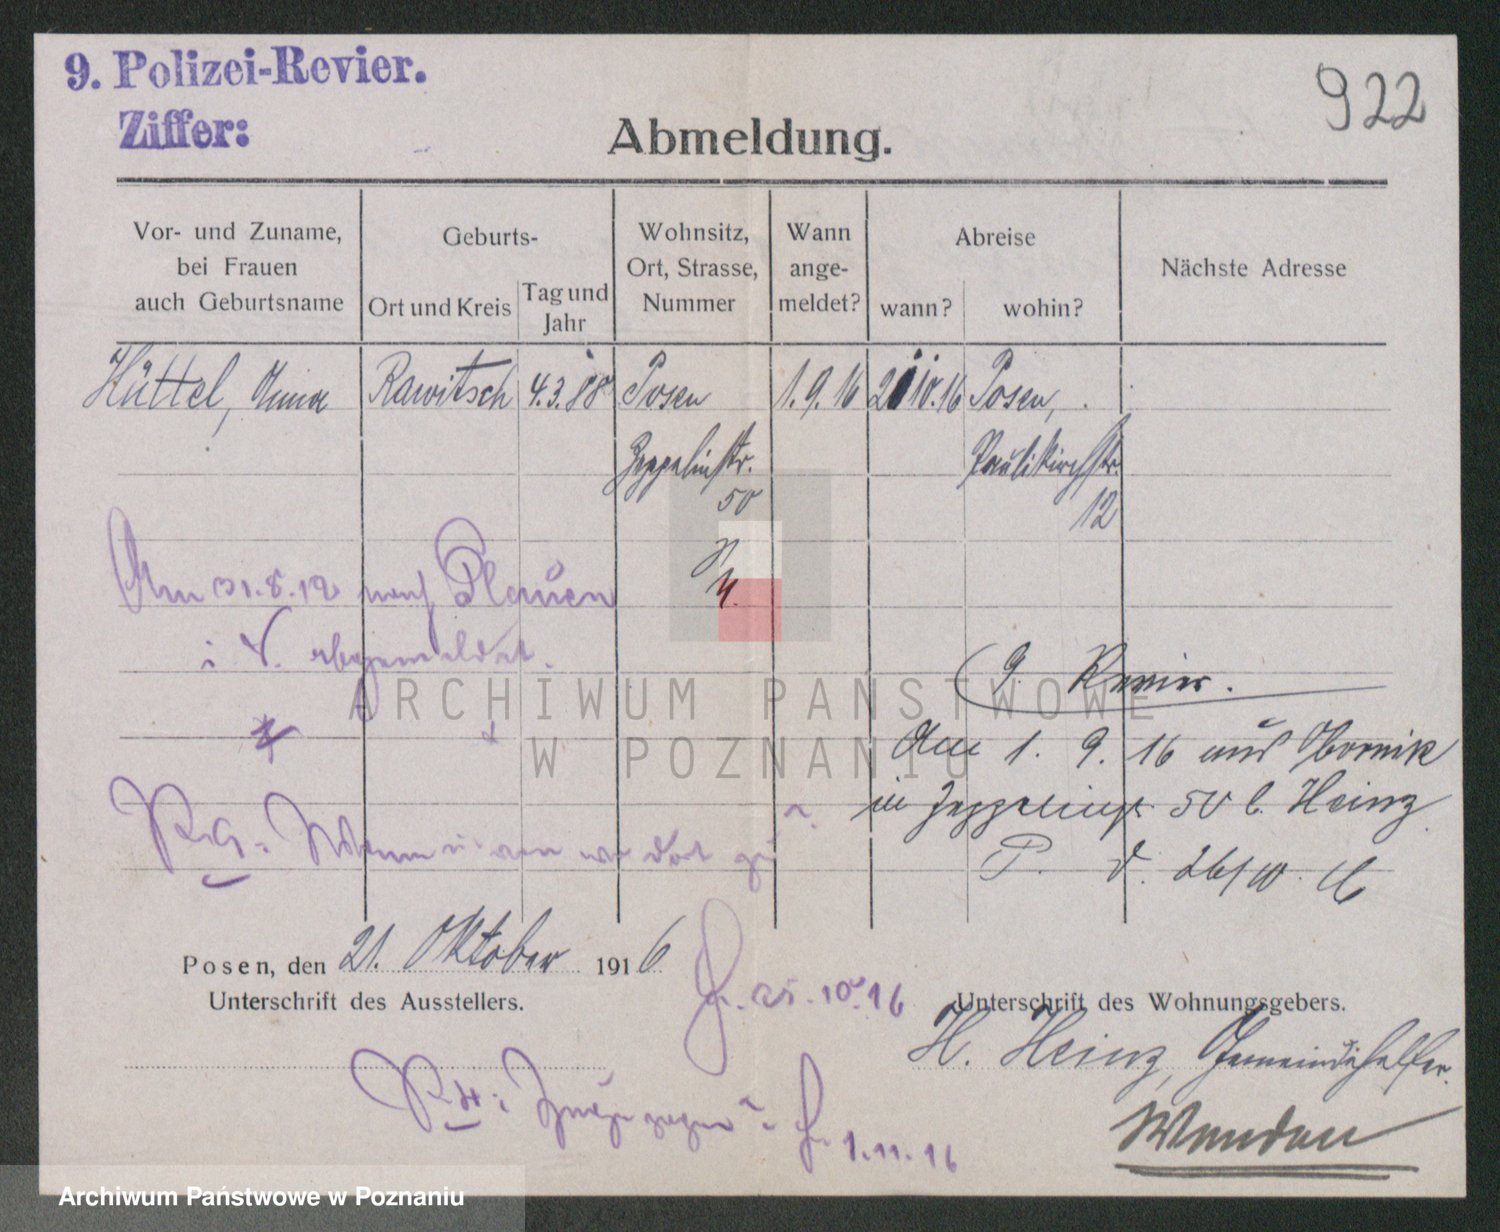 9. Polizei-Revier.
Ziffer:
922
Abmeldung.
Vor- und Zuname, bei Frauen auch Geburtsname
Geburts-
Ort und Kreis
Tag und Jahr
Wohnsitz, Ort, Strasse, Nummer
Wann ange-meldet?
Abreise
wann?
wohin?
Nächste Adresse
Hüttel, Anna
Rawitsch
4.3.88
Posen
1.9.16
10.16
Posen,
Zeppelinstr.
Paulikirchstr.
50
12
Am 31.8.19 nach Plauen
i V. abgemeldet.
9. Revier.
Am 1. 9. 16 aus Obornik
in Zeppelinstr 50 b. Heinz
P. d. 26/10. 16
Posen, den 21. Oktober 1916
Unterschrift des Ausstellers.
25.10.16
Unterschrift des Wohnungsgebers.
H. Heinz, Gemeindehelfer.
1.11.16
ARCHIWUM PAŃSTWOWE
W POZNANIU
Archiwum Państwowe w Poznaniu